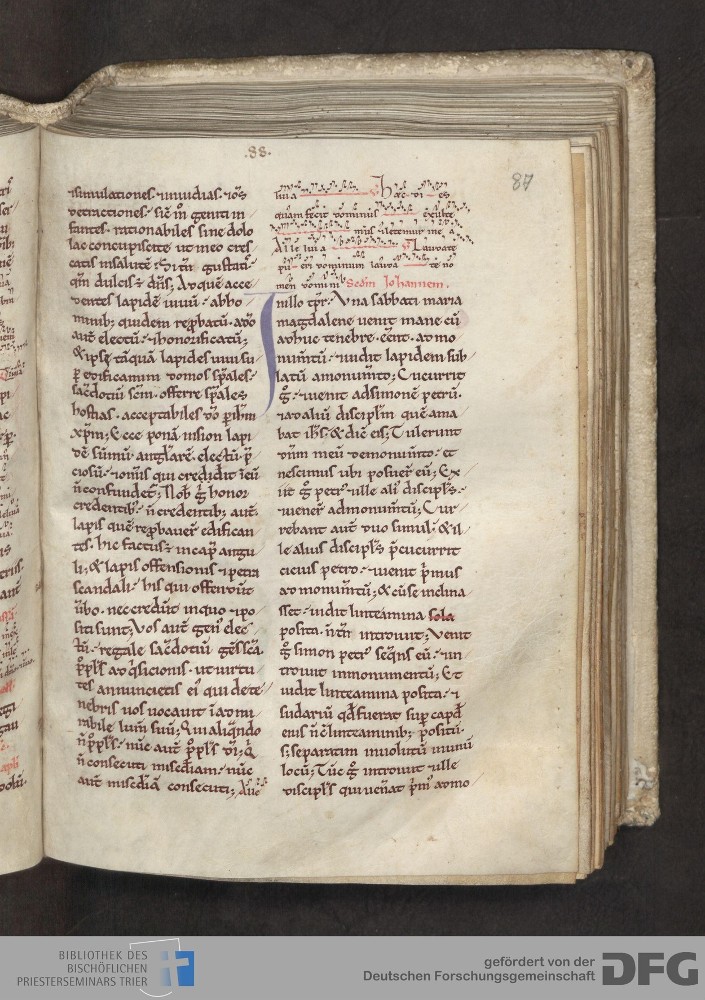 .88.
87
simulationes. inuidias. ⁊ oẜ
detractiones. sic̄ m̊ geniti in
fantes. rationabiles sine dolo
lac concupiscite ut in eo cres
catis in salutē. Si tn̄ gustatis
qm̄ dulcis ē dn̄s; Ad quē acce
dentes lapidē uiuū. ab ho
minib; quidem reꝓbatū. a dō
aut̄ electū. ⁊ honorificatū;
& ipsi tāquā lapides uiui su
ꝑ edificamini domos sp̄ales.
sac̄dotiū sc̄m. offerre sp̄ales
hostias. acceptabiles dō ꝑ ih̄m
xp̄m; Ecce ponā in sion lapi
dē sūmū angłarē. electū. p̄
ciosū. ⁊ om̄is qui crediderit ī eū
n̄ confundet̄; Uob̄ g̊ honor
credentib;. n̄ credentib; aut̄.
lapis quē reꝓbauer̄ edifican
tes. hic factus ē in cap̄ angu
li; & lapis offensionis ⁊ petra
scandali. his qui offendūt
ūbo. nec credūt in quo ⁊ po
siti sunt; Uos aut̄ gen̄ elec
tū. regale sac̄dotiū gens sc̄a.
ppłs adq̇sicionis. ut uirtu
tes annuncietis ei̾ qui de te
nebris uos uocauit ī admi
rabile lum̄ suū; Qui aliq̄ndo
n̄ ppłs. nūc aut̄ ppłs dī; Q̇
n̄ consecuti mis̄cdiam. nūc
aut̄ mis̄cdiā consecuti; Alle
luia Haec di es
quam fecit dominus exulte
mus & letemur in e a
Alle luia Laudate
pu eri dominum lauda te no
men domini Scd̄m Johannem.
In illo tp̄r. Una sabbati maria
magdalene uenit mane cū
adhuc tenebre eēnt. ad mo
numtū. ⁊ uidit lapidem sub
latū a monumto; Cucurrit
g̊. ⁊ uenit ad simonē petrū.
⁊ ad aliū discipłm quē ama
bat ih̄s. & dic̄ eis; Tulerunt
dn̄m meū de monumto. et
nescimus ubi posuer̄ eū; Ex
iit g̊ petr̾ ⁊ ille ali̾ discipłs.
⁊ uener̄ ad monumtū; Cur
rebant aut̄ duo simul. & il
le alius discipłs p̄cucurrit
cicius petro. ⁊ uenit p̄mus
ad monumtū; & cū se inclina
sset. uidit linteamina sola
posita. n̄ tn̄ introiuit; Uenit
g̊ simon petr̾ seq̄ns eū. ⁊ in
troiuit in monumentū; Et
uidit linteamina posita. ⁊
sudariū qđ fuerat sup̄ capđ
eius n̄ cū linteaminib; positū.
s; separatim inuolutū in unū
locū; Tūc g̊ introiuit ⁊ ille
discipłs qui uen̄at p̄m̾ ad mo
BIBLIOTHEK DES
BISCHÖFLICHEN
PRIESTERSEMINARS TRIER
gefördert von der
Deutschen Forschungsgemeinschaft
DFG